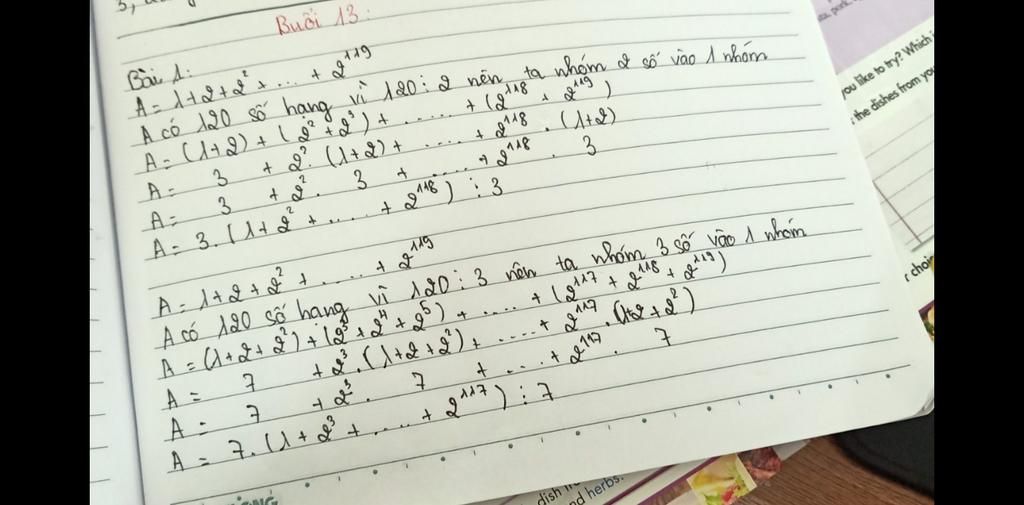 3,
Buổi 13:
Bài 1:
A = 1+2+2² + ... + 2¹¹⁹
A có 120 số hạng vì 120 ⋮ 2 nên ta nhóm 2 số vào 1 nhóm
A = (1+2) + (2² + 2³) + ...... + (2¹¹⁸ + 2¹¹⁹)
A = 3 + 2² . (1+2) + .... + 2¹¹⁸ . (1+2)
A = 3 + 2² . 3 + .... + 2¹¹⁸ . 3
A = 3 . (1 + 2² + ..... + 2¹¹⁸) ⋮ 3
A = 1+2+2² + ... + 2¹¹⁹
A có 120 số hạng vì 120 ⋮ 3 nên ta nhóm 3 số vào 1 nhóm
A = (1+2+2²) + (2³ + 2⁴ + 2⁵) + ..... + (2¹¹⁷ + 2¹¹⁸ + 2¹¹⁹)
A = 7 + 2³ . (1+2+2²) + ..... + 2¹¹⁷ . (1+2+2²)
A = 7 + 2³ . 7 + ... + 2¹¹⁷ . 7
A = 7 . (1 + 2³ + ..... + 2¹¹⁷) ⋮ 7
you like to try? Which
the dishes from you
choi
dish
nd herbs.